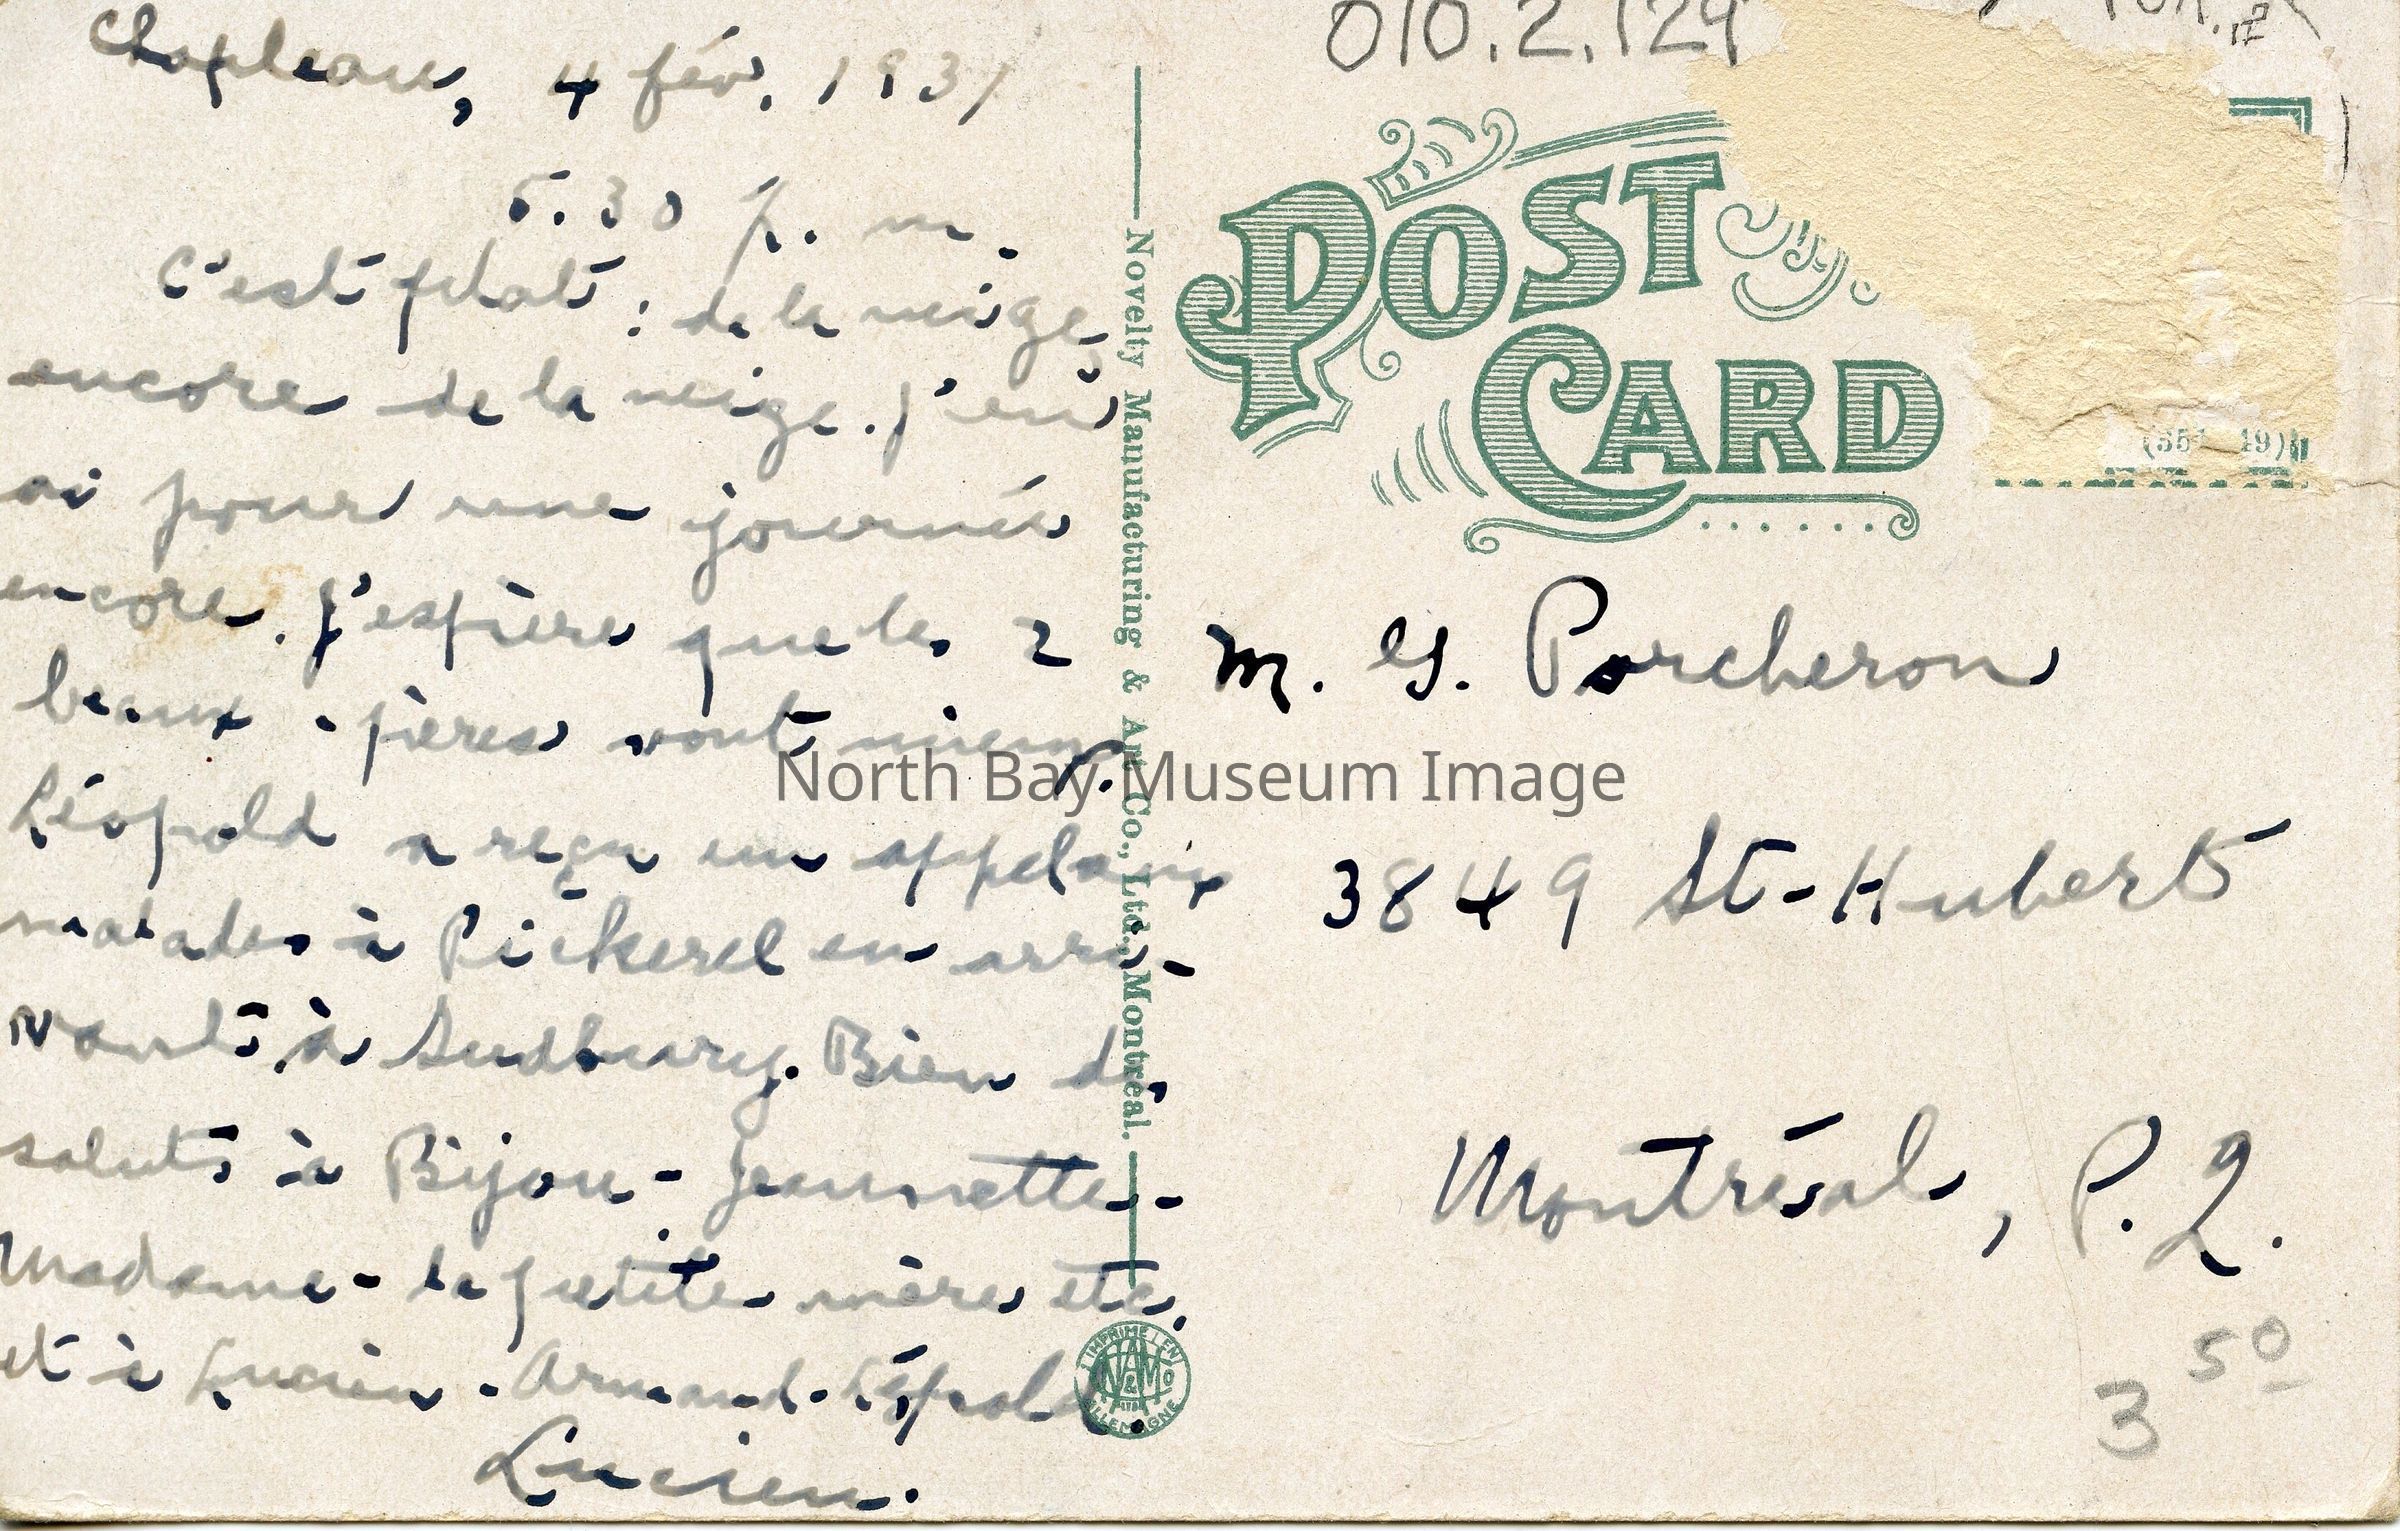 Chapleau, 4 fév. 1931
5.30 p. m.
C'est plat : de la neige,
encore de la neige. J'en
ai pour une journée
encore. J'espère que les 2
beaux-pères vont mieux.
Léopold a reçu un appel aux
malades à Pickerel en arri-
vant à Sudbury. Bien des
saluts à Bijou - Jeannette -
Madame - la petite mère etc.
et à Lucien - Armand - Léopold.
Lucien.
Novelty Manufacturing & Art Co., Ltd., Montreal.
IMPRIMÉ EN
ALLEMAGNE
010.2.129
POST
CARD
M. G. Porcheron
3849 St-Hubert
Montréal, P. Q.
3 50
North Bay Museum Image